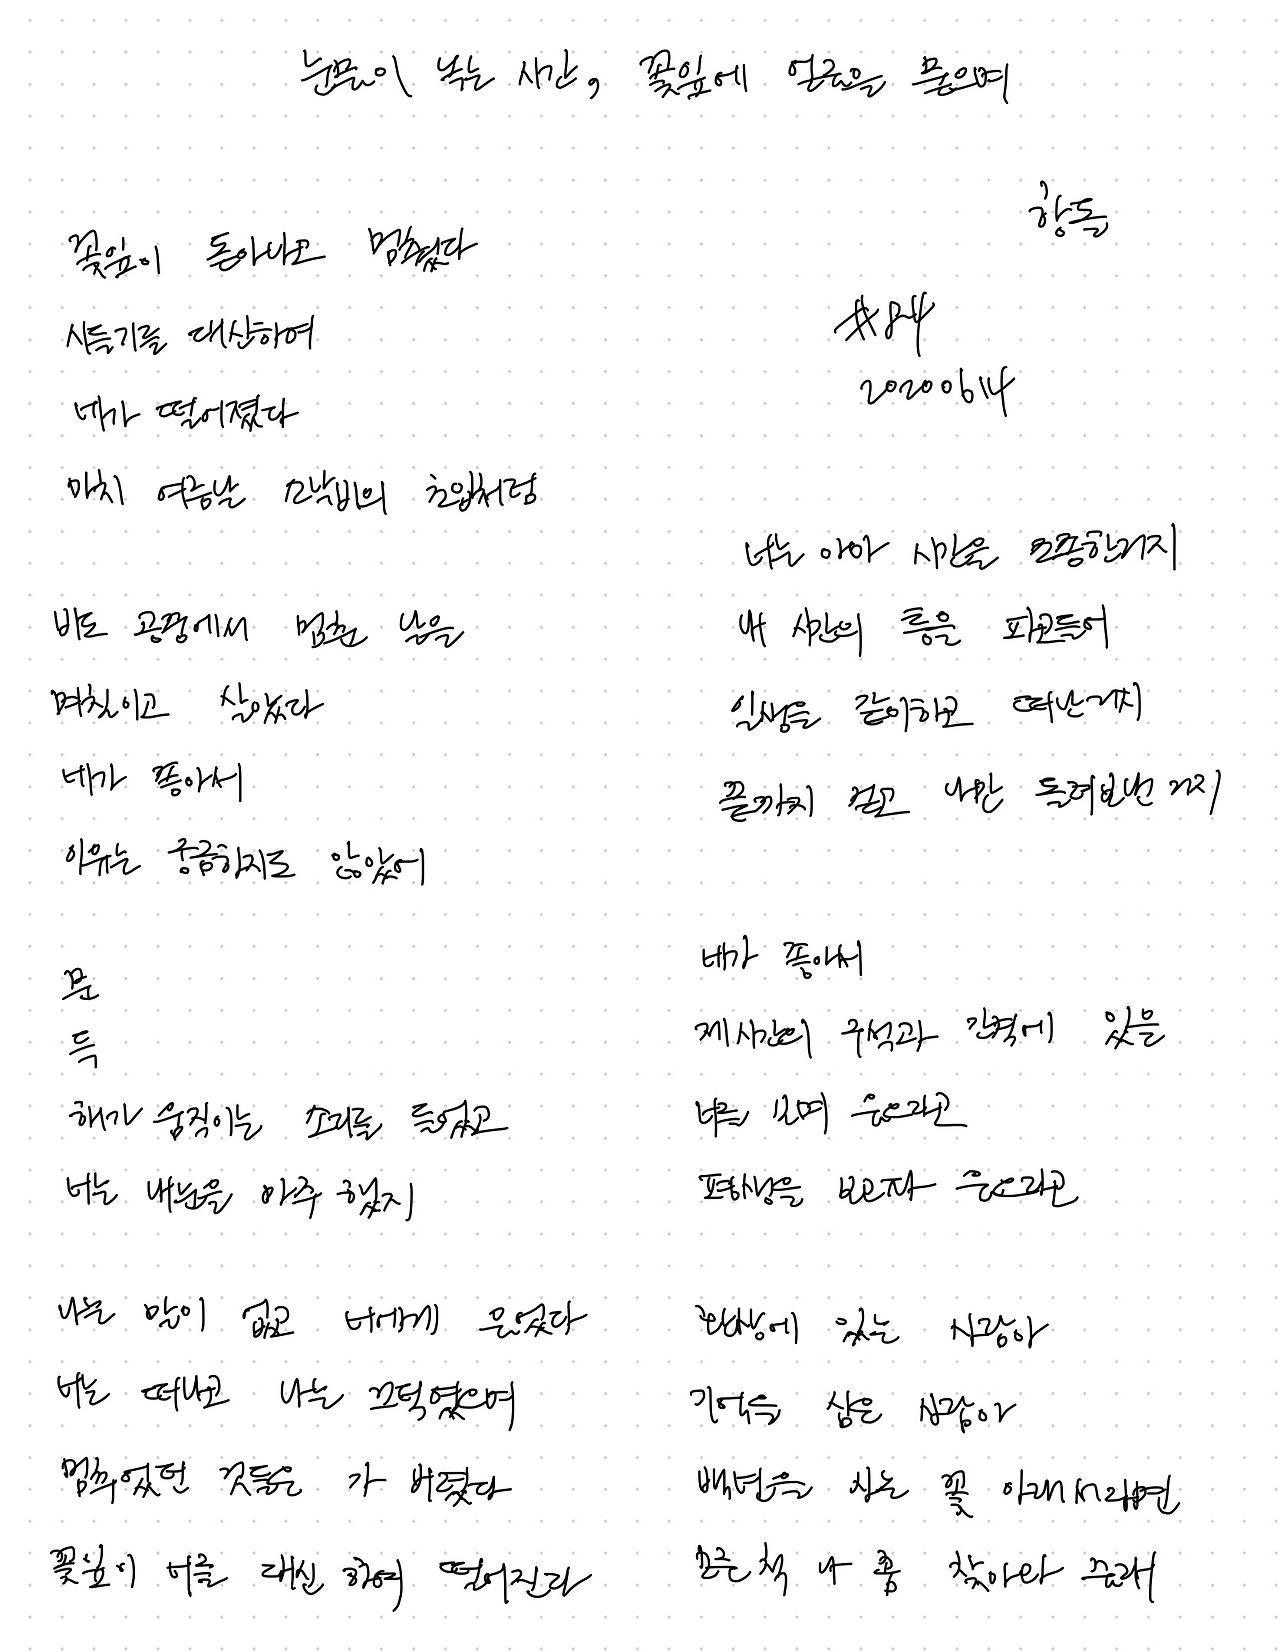 눈물이 녹는 시간, 꽃잎에 얼굴을 묻으며
항돌
#84
20200614
꽃잎이 돋아나고 멈추었다
시들기를 대신하여
네가 떨어졌다
마치 여름날 소낙비의 초입처럼
비도 공중에서 멈춘 날을
며칠이고 살았다
네가 좋아서
이유는 궁금하지도 않았어
문
득
해가 움직이는 소리를 들었고
너는 내 눈을 마주 했지
나는 말이 없고 너에게 물었다
너는 떠나고 나는 끄덕였으며
멈추었던 것들은 가 버렸다
꽃잎이 너를 대신하여 떨어진다
너는 아마 시간을 조종한거지
내 시간의 틈을 파고들어
일생을 같이하고 떠난거지
끝까지 걷고 나만 돌려보낸거지
네가 좋아서
제 시간의 구석과 간격에 있을
너를 보며 웃으라고
평생을 보고자 웃으라고
환상에 있는 사랑아
기억을 삼은 사랑아
백년을 사는 꽃 아래서라면
모른 척 나 좀 찾아와 줄래